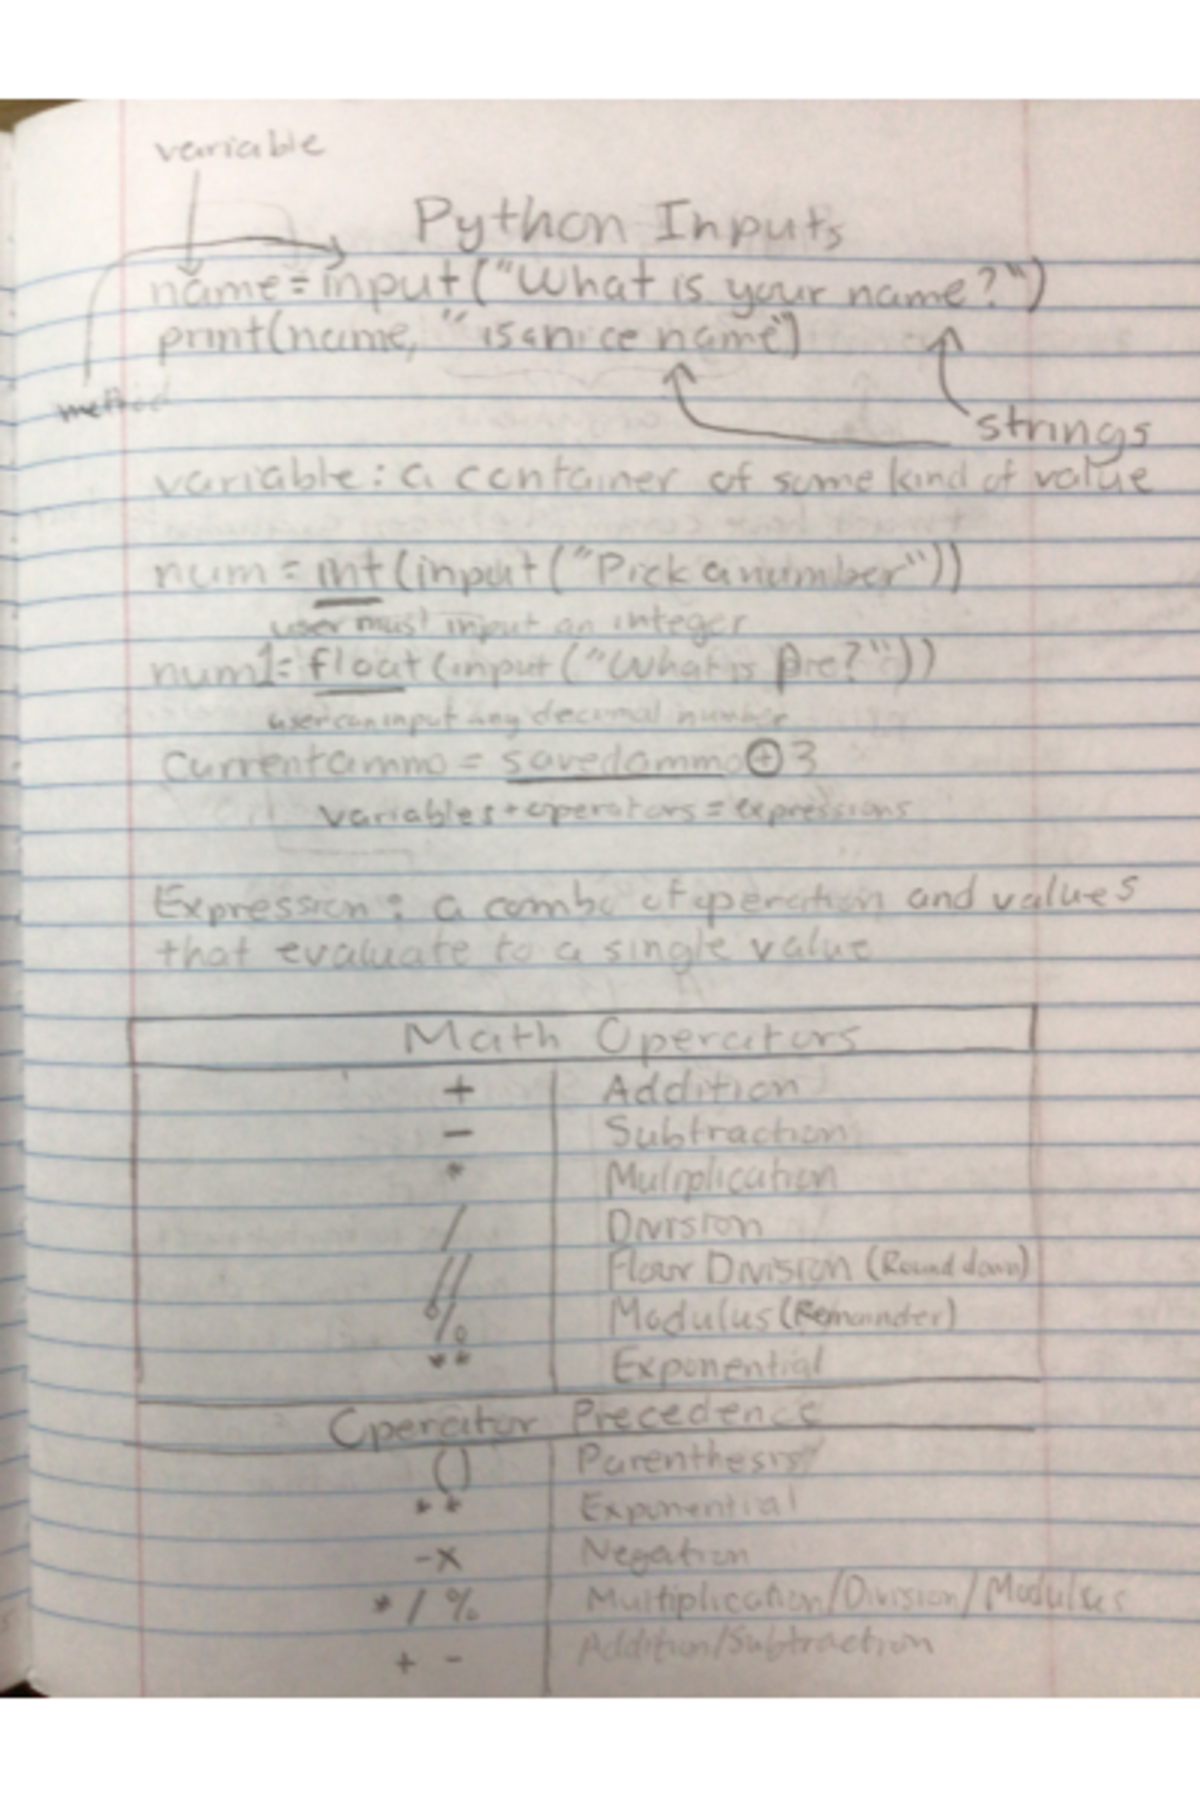 variable
Python Inputs
name=input("What is your name?")
print(name, " is a nice name")
method
strings
variable: a container of some kind of value
num = int (input ("Pick a number"))
user must input an integer
num1= float (input ("What is pie?"))
user can input any decimal number
currentammo = savedammo + 3
variables + operators = expressions
Expression: a combo of operation and values
that evaluate to a single value
Math Operators
+ Addition
- Subtraction
* Muliplication
/ Division
// Floor Division (Round down)
% Modulus (Remainder)
** Exponential
Operator Precedence
() Parenthesis
** Exponential
-x Negation
* / % Multiplication/Division/Modulus
+ - Addition/Subtraction